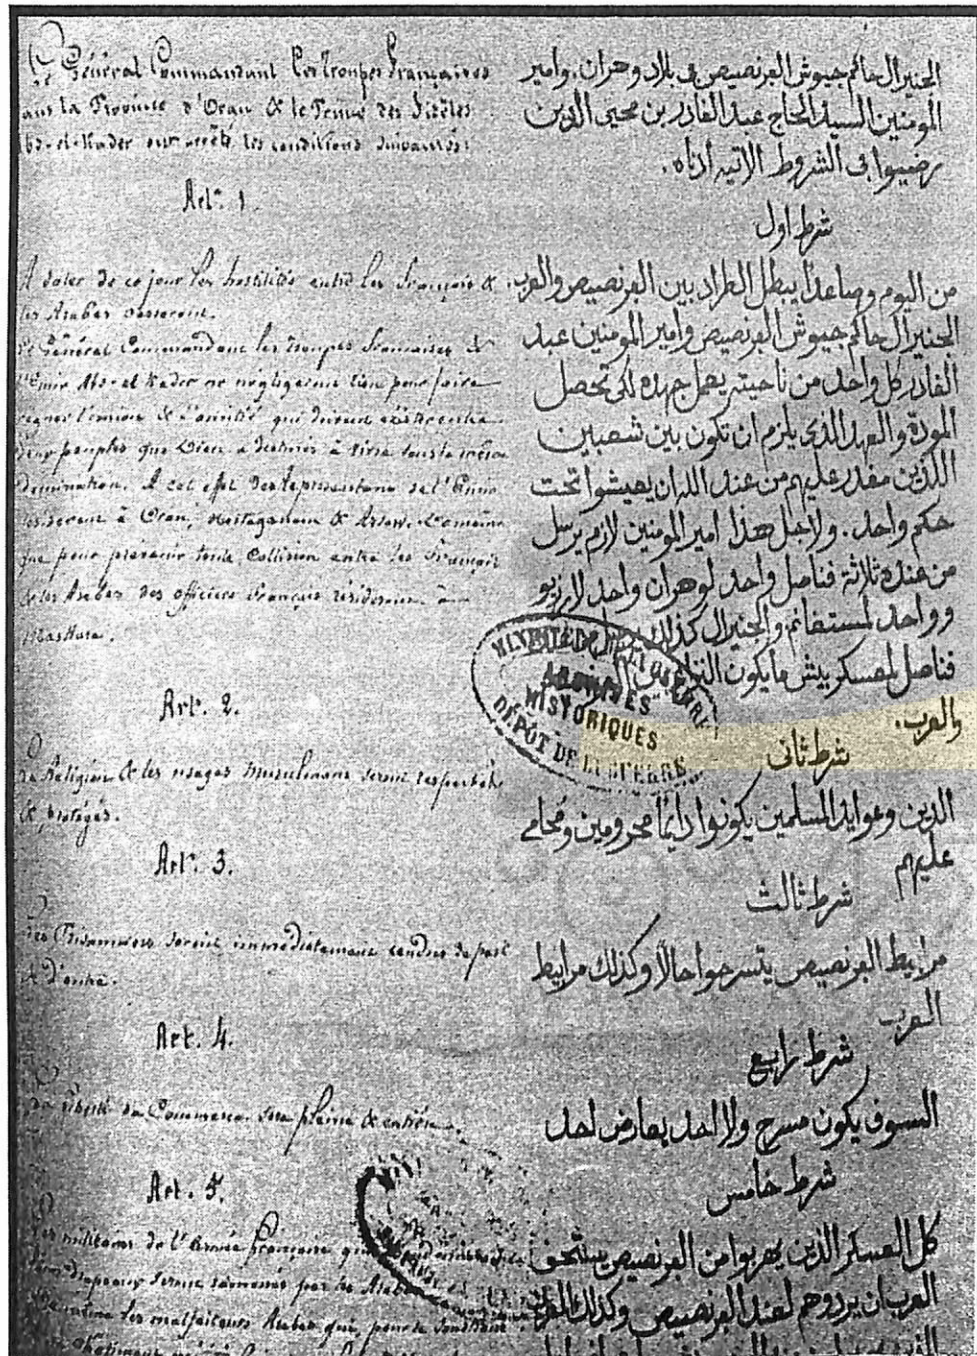 Le Général Commandant les troupes Françaises
dans la Province d'Oran & le Prince des Fidèles
Abd-el-Kader ont arrêté les conditions suivantes:
Art. 1.
A dater de ce jour les hostilités entre les Français &
les Arabes cesseront.
Le Général Commandant les troupes françaises &
l'Emir Abd-el-Kader ne négligeront rien pour faire
régner l'union & l'amitié qui doivent exister entre
deux peuples que Dieu a destinés à vivre sous la même
domination. A cet effet des représentans de l'Emir
résideront à Oran, Mostaganem & Arzew. De même
que pour prévenir toute collision entre les Français
& les Arabes des officiers français résideront à
Mascara.
Art. 2.
La Religion & les usages musulmans seront respectés
& protégés.
Art. 3.
Les Prisonniers seront immédiatement rendus de part
& d'autre.
Art. 4.
La liberté du Commerce sera pleine & entière.
Art. 5.
Les militaires de l'Armée française qui
leurs drapeaux seront ramenés par les Arabes
De même les malfaiteurs Arabes qui, pour se soustraire
الجنيرال حاكم جيوش الفرنصيص في بلاد وهران. وامير
المومنين السيد الحاج عبد القادر بن محيي الدين
رضيوا في الشروط الاتيه ادناه.
شرط اول
من اليوم وصاعدا يبطل الطراد بين الفرنصيص والعرب
الجنيرال حاكم جيوش الفرنصيص وامير المومنين عبد
القادر كل واحد من ناحيته يعمل جهده لكى تحصل
المودة والعهد الذى يلزم ان تكون بين شعبين
الذين مقدر عليهم من عند الله ان يعيشوا تحت
حكم واحد. ولاجل هذا امير المومنين لازم يرسل
من عنده ثلاثة قناصل واحد لوهران واحد لارزيو
وواحد لمستغانم والجنيرال كذلك
قناصل لمعسكر بيش ما يكون
والعرب.
شرط ثانى
الدين وعوايد المسلمين يكونوا دايمًا محرومين ومُحامى
عليهم
شرط ثالث
مرابيط الفرنصيص يتسرحوا حالاً وكذلك مرابيط
العرب
شرط رابع
السوق يكون مسرح ولا احد يعارض احد
شرط خامس
كل العسكر الذين يهربوا من الفرنصيص يستحق
العرب ان يردوهم لعند الفرنصيص وكذلك العرب
ARCHIVES
HISTORIQUES
DÉPÔT DE LA GUERRE